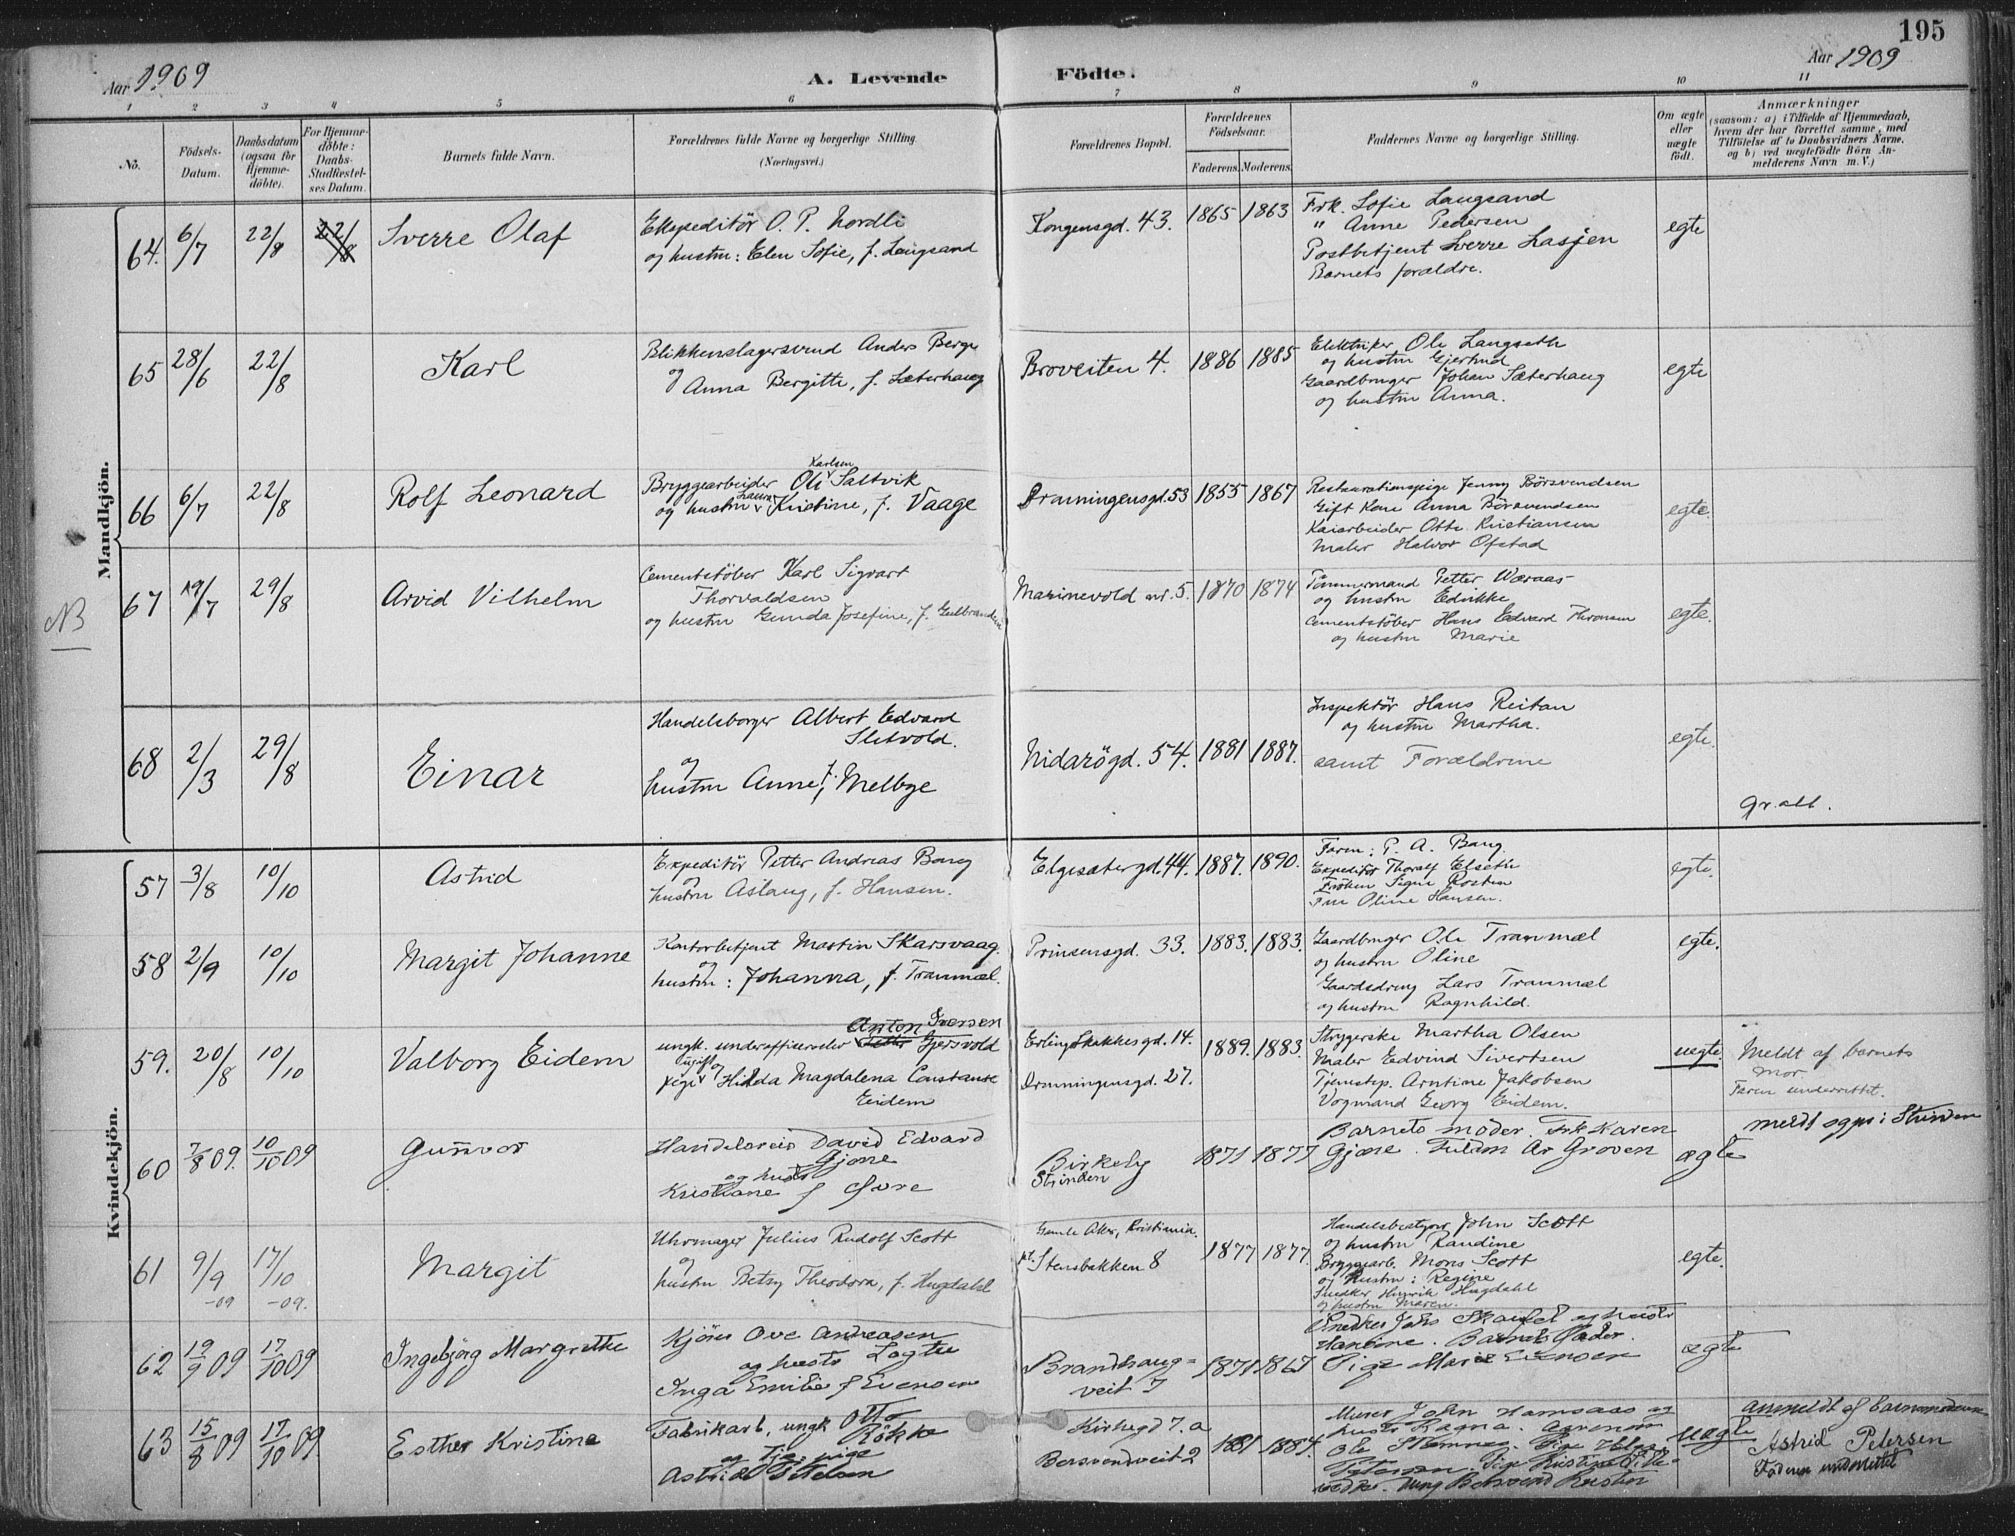 195
Aar 1909
A. Levende Födte.
Aar 1909
1 2 3 4 5 6 7 8 9 10 11
No.
Födsels-Datum.
Daabsdatum (ogsaa for Hjemme-døbte).
For Hjemme-døbte: Daabs-Stadfæstel-ses Datum.
Barnets fulde Navn.
Forældrenes fulde Navne og borgerlige Stilling.
(Næringsvei.)
Forældrenes Bopæl.
Forældrenes Födselsaar.
Faderens. Moderens.
Faddernes Navne og borgerlige Stilling.
Om ægte eller uægte født.
Anmærkninger
(saasom: a) i Tilfælde af Hjemmedaab,
hvem der har forrettet samme, med
Tilføielse af to Daabsvidners Navne,
og b) ved uægtefødte Børn An-
melderens Navn m. V.)
Mandkjön.
NB
64. 6/7 22/8 22/8 Sverre Olaf
Ekspeditör O. P. Nordli
og hustru: Elen Sofie, f. Langsand
Kongensgd. 43. 1865 1863
Frk. Sofie Langsand
" Anne Pedersen
Postbetjent Sverre Lasjen
Barnets forældre.
egte
65 28/6 22/8 Karl
Blikkenslagersvend Anders Berge
og Anna Bergitte, f. Sæterhaug
Broveiten 4. 1886 1885
Elektriker Ole Langseth
og hustru Gjertrud
Gaardbruger Johan Sæterhaug
og hustru Anna.
egte
66 6/7 22/8 Rolf Leonard
Karlsen
Bryggearbeider Ole Saltvik
Laura
og hustru Kristine, f. Vaage
Dronningensgd. 53 1855 1867
Restaurationspige Jenny Börsvendsen
Gift Kone Anna Börsvendsen
Kaiarbeider Otto Kristiansen
Maler Halvor Ofstad
egte.
67 19/7 29/8 Arvid Vilhelm
Cementstöber Karl Sigvart
Thorvaldsen
og hustru Gunda Josefine, f. Gulbrandsen
Marinevold nr. 5. 1870 1874
Tömmermand Petter Wæraas
og hustru Edvikke
Cementstöber Hans Edvard Thronsen
og hustru Marie
egte.
68 2/3 29/8 Einar
Handelsborger Albert Edvard
Sletvold.
og
hustru Anne, f. Melbye
Nidarögd. 54. 1881 1887.
Inspektör Hans Reitan
og hustru Martha.
samt Forældrene
egte.
gr. att.
Kvindekjön.
57 3/8 10/10 Astrid
Expeditör Petter Andreas Bang
og
hustru Aslaug, f. Hansen.
Elgesætergd. 44. 1887. 1890.
Faren: P. A. Bang.
Expeditör Thoralf Elseth
Fröken Signe Rosten
Fru Oline Hansen.
egte.
58 2/9 10/10 Margit Johanne
Kontorbetjent Martin Skarsvaag.
og
hustru: Johanna, f. Tranmæl.
Prinsensgd. 33. 1883. 1883.
Gaardbruger Ole Tranmæl
og hustru Oline
Gaardsdreng Lars Tranmæl
og hustru Ragnhild.
egte.
59. 20/8 10/10 Valborg Eidem
Anton Iversen
ungk. underofficerselev Petter Gjersvold
ugift og
pige Hilda Magdalena Constanse
Eidem
Erling Skakkes gd. 14.
Dronningensgd. 27.
1889. 1883.
Strygerske Martha Olsen
Maler Edvind Sivertsen
Tjenestep. Arntine Jakobsen
Vognmand Georg Eidem.
uegte.
Meldt af barnets
Mor.
Faren underrettet.
60 7/8 09. 10/10 09 Gunvor
Handelsreis David Edvard
Gjöne
og hustr
Kristiane f Gjære
Birkely
Strinden
1871 1877
Barnets moder. Frk Karen
Gjære. Fuldm Ar Groven
ægte
meldt ogs: Strinden
61 9/9 -09 17/10 -09. Margit
Uhrmager Julius Rudolf Scott
og
hustru Betsy Theodora, f. Hugdahl
Gamle Aker, Kristiania.
pt. Stensbakken 8
1877 1877.
Handelsbestyrer John Scott
og hustru Randine
Bryggearb. Mons Scott
og hustru: Regine
Snedker Henrik Hugdahl
og hustru Maren.
egte.
62 19/9 09 17/10 09 Ingebjörg Margrethe
Kjöres Ove Andreasen
og hustr Lagte
Inga Emilie f Evensen
Brandhaug-
veit 7
1871 1867
Snedker Johs Skaufel og hustr
Hansine. Barnets Fader.
Pige Marie Evensen
ægte
63 15/8 09 17/10 09. Esther Kristine
Fabrikarb, ungk Otto
Rökke
og tje. pige
Astrid Pettersen
Kirkegd 7. a
Borsvendveit 2
1881 1884.
Murer John Hamsaas og
hustr Ragna. Agronom
Ole
uægte
anmeldt af barnemoderen
Astrid Petersen
Faderen underrettet